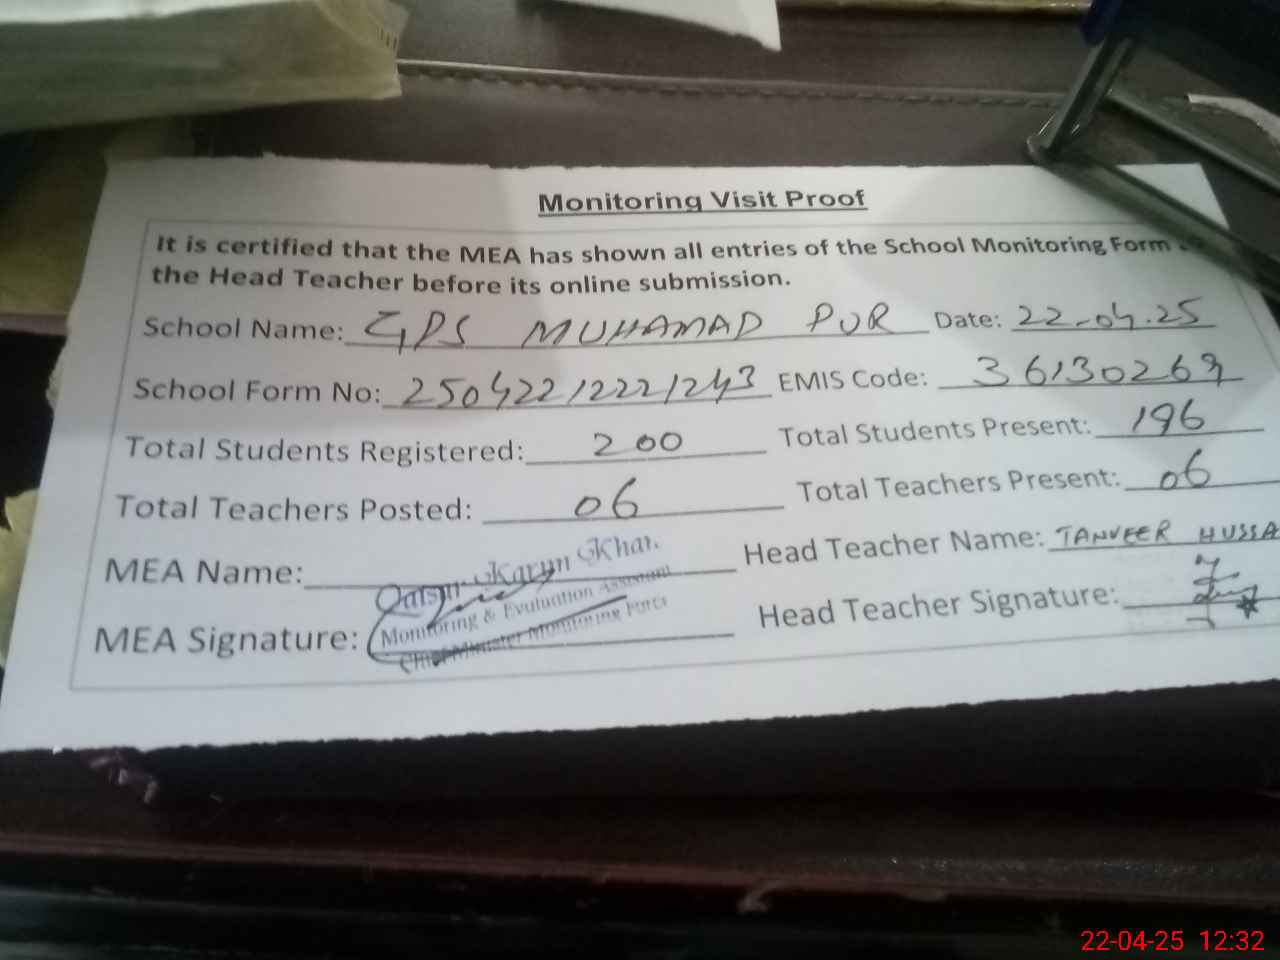 Monitoring Visit Proof
It is certified that the MEA has shown all entries of the School Monitoring Form
the Head Teacher before its online submission.
School Name: GPS MUHAMAD PUR Date: 22-04-25
School Form No: 25042212221243 EMIS Code:
Total Students Registered: 200 Total Students Present: 196
Total Teachers Posted: 06 Total Teachers Present: 06
MEA Name: Karym Khan Head Teacher Name: TANVEER HUSSA
Monitoring & Evaluation Assistant
MEA Signature: Chief Minister Monitoring Force Head Teacher Signature:
22-04-25 12:32